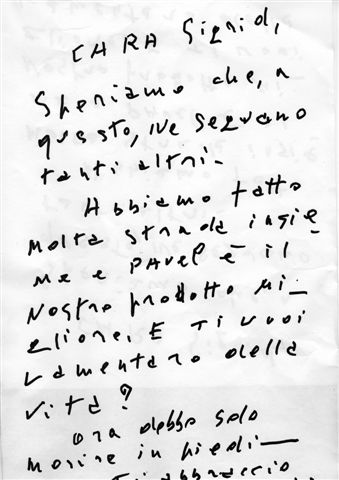 CARA Sigrid,
Speriamo che, a
questo, ne seguano
tanti altri.
Abbiamo fatto
molta strada insie
me e PAVEL è il
nostro prodotto mi_
gliore. E ti vuoi
lamentare della
vita?
Ora debbo solo
morire in piedi—
Ti abbraccio